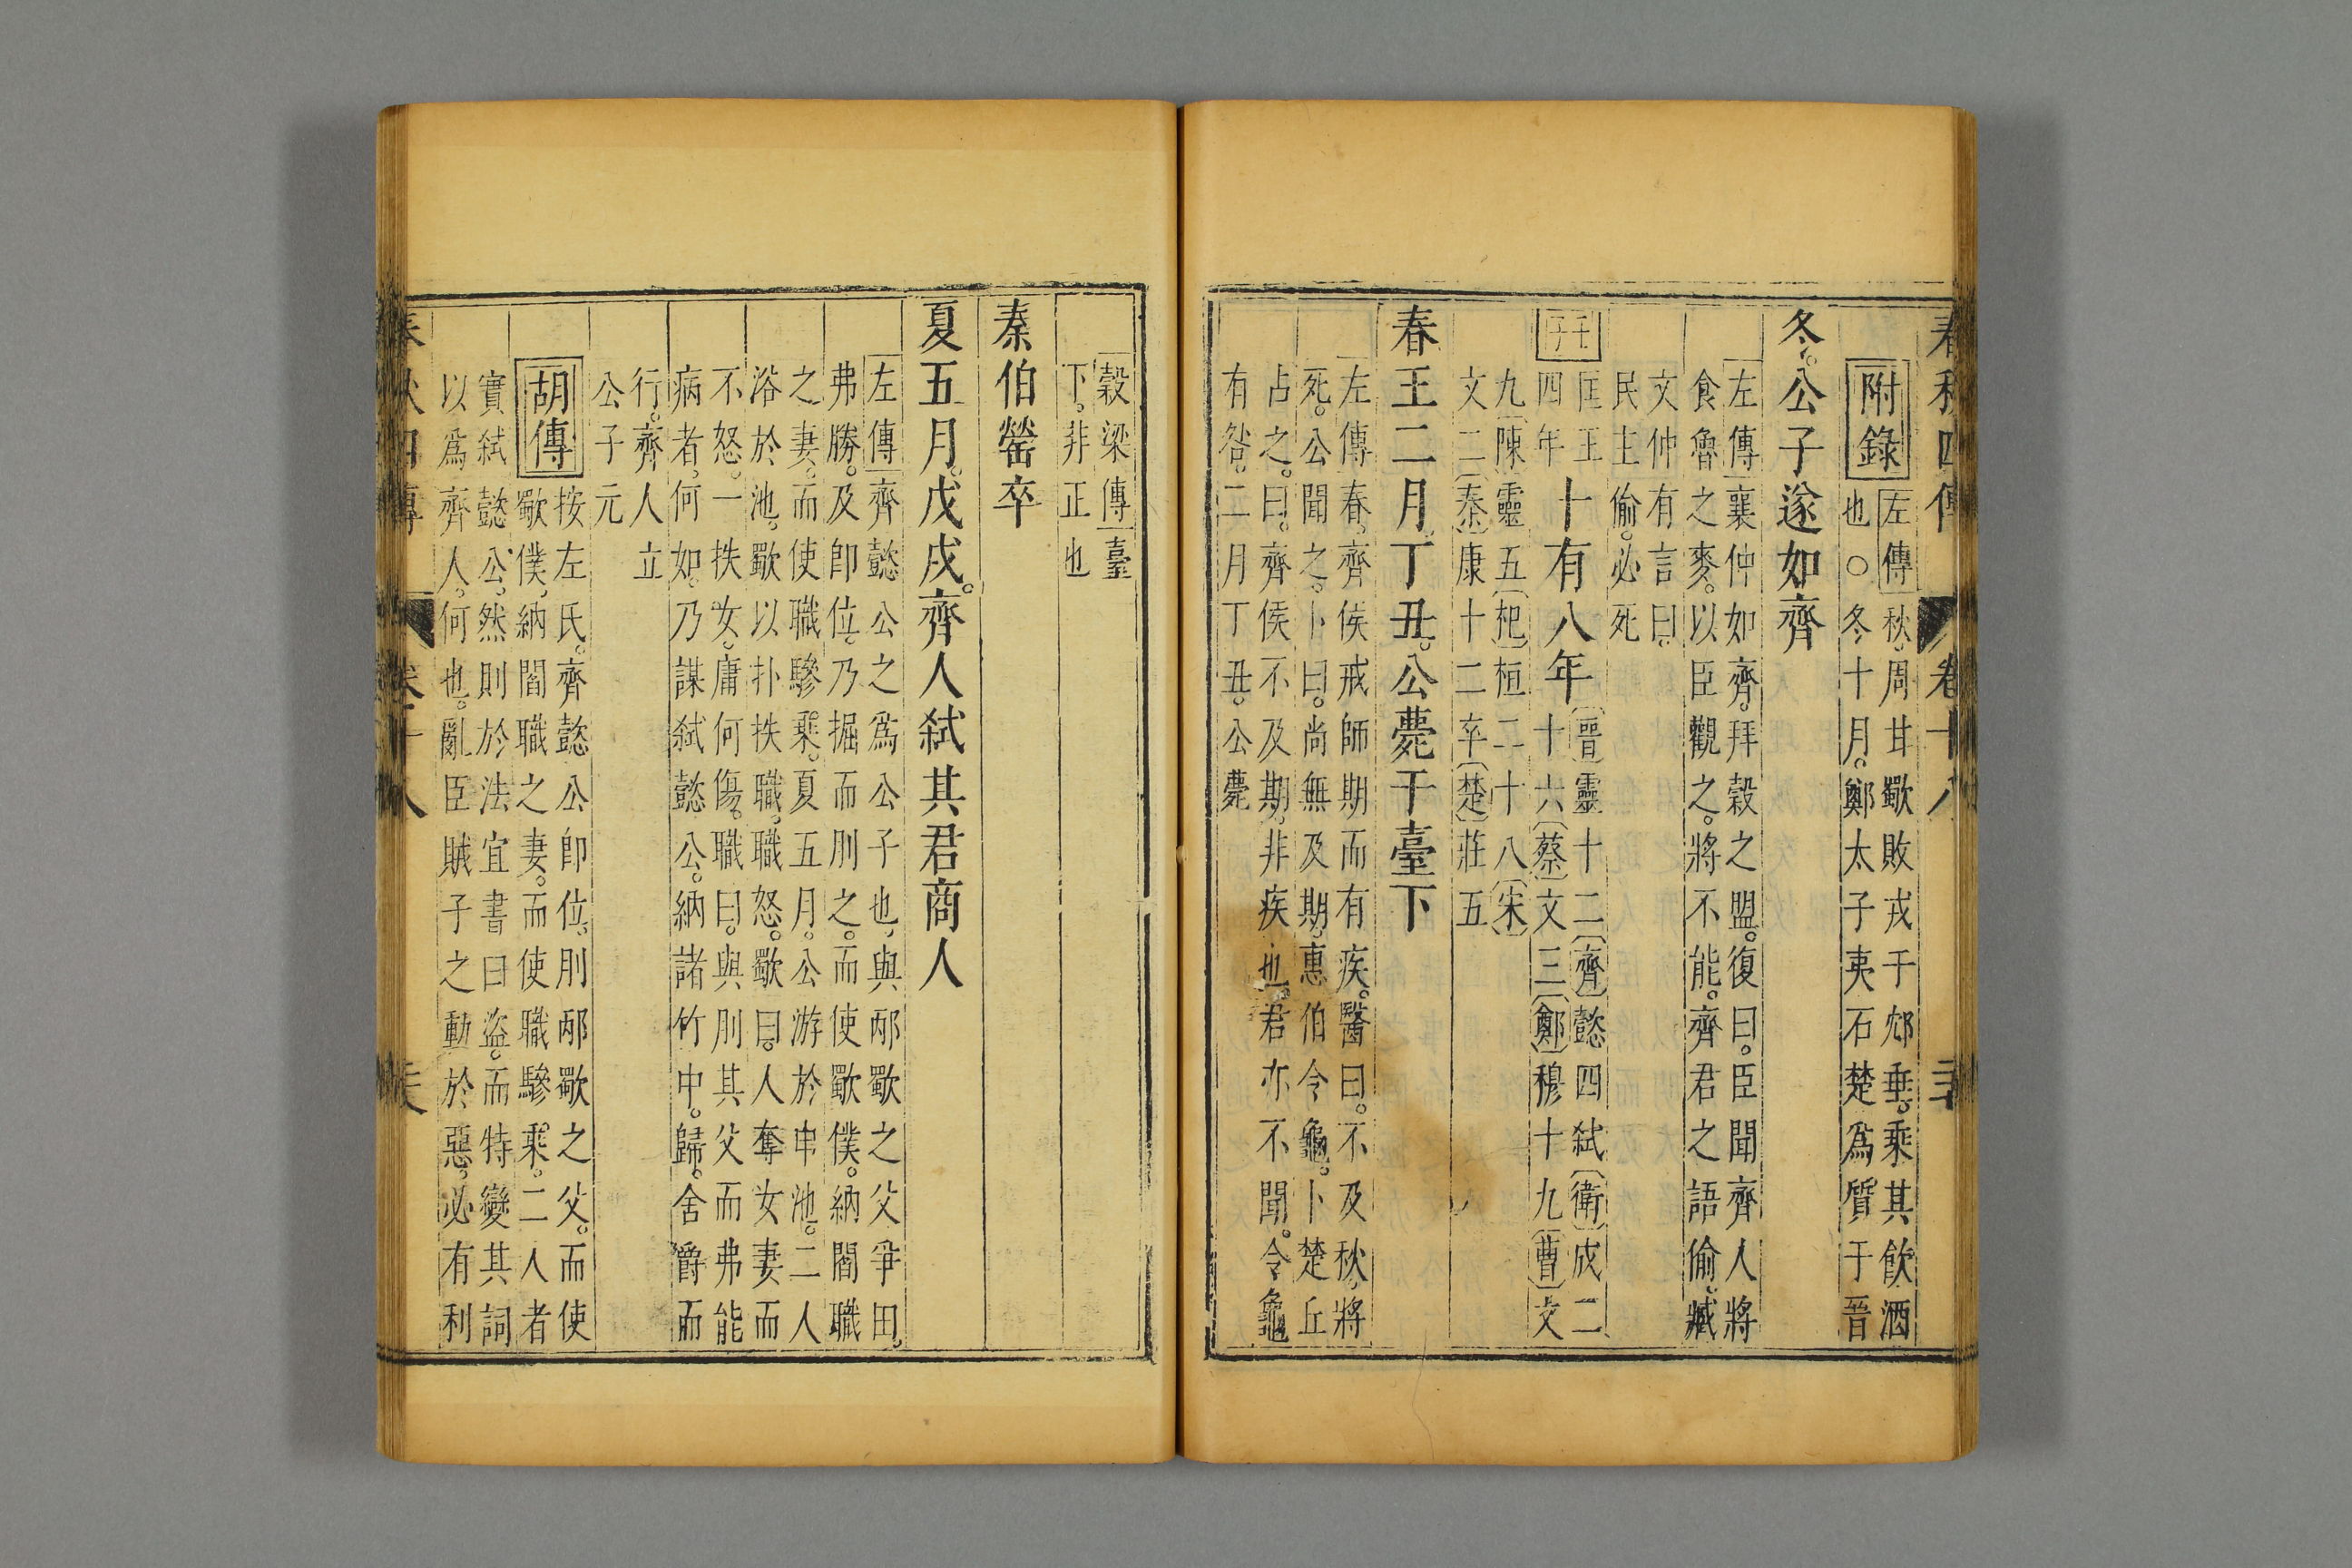 春秋四傳 卷十八
附錄
左傳秋。周甘歜敗戎于邥垂。乘其飲酒
也○冬十月。鄭太子夷石楚爲質于晉
冬。公子遂如齊
左傳襄仲如齊。拜穀之盟。復曰。臣聞齊人將
食魯之麥。以臣觀之。將不能。齊君之語偷。臧
文仲有言曰。
民主偷。必死
壬子
匡王
四年
十有八年
晉靈十二齊懿四弑衛成二
十六蔡文三鄭穆十九曹文
九陳靈五杞桓二十八宋
文二秦康十二卒楚莊五
春王二月。丁丑。公薨于臺下
左傳春。齊侯戒師期而有疾。醫曰。不及秋。將
死。公聞之。卜曰。尚無及期。惠伯令龜。卜楚丘
占之。曰。齊侯不及期。非疾也。君亦不聞。令龜
有咎。二月丁丑。公薨
穀梁傳臺
下。非正也
秦伯罃卒
夏五月。戊戌。齊人弑其君商人
左傳齊懿公之爲公子也。與邴歜之父爭田。
弗勝。及卽位。乃掘而刖之。而使歜僕。納閻職
之妻。而使職驂乘。夏五月。公游於申池。二人
浴於池。歜以扑抶職。職怒。歜曰。人奪女妻而
不怒。一抶女。庸何傷。職曰。與刖其父而弗能
病者。何如。乃謀弑懿公。納諸竹中。歸。舍爵而
行。齊人立
公子元
胡傳
按左氏。齊懿公卽位。刖邴歜之父。而使
歜僕。納閻職之妻。而使職驂乘。二人者
實弑懿公。然則於法宜書曰盜。而特變其詞
以爲齊人。何也。亂臣賊子之動於惡。必有利